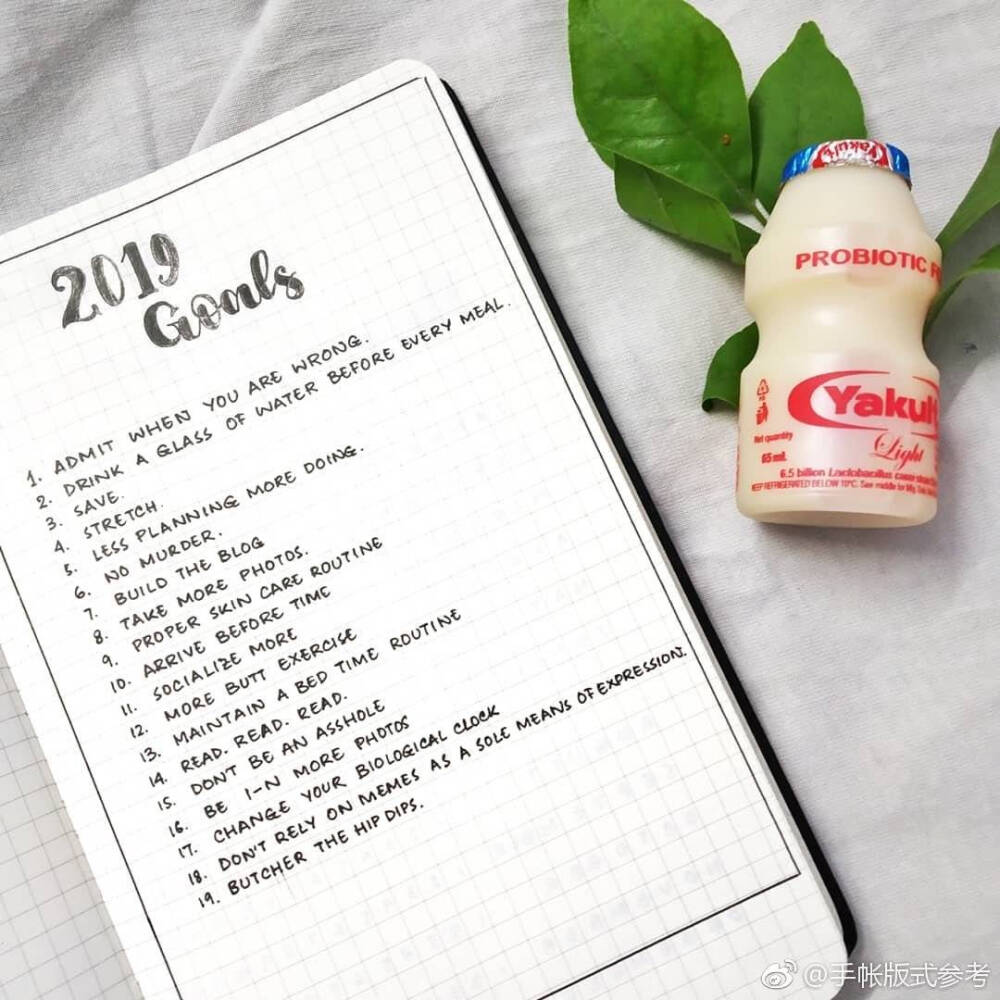 2019
Goals
1. ADMIT WHEN YOU ARE WRONG.
2. DRINK A GLASS OF WATER BEFORE EVERY MEAL.
3. SAVE.
4. STRETCH.
5. LESS PLANNING MORE DOING.
6. NO MURDER.
7. BUILD THE BLOG
8. TAKE MORE PHOTOS.
9. PROPER SKIN CARE ROUTINE
10. ARRIVE BEFORE TIME
11. SOCIALIZE MORE
12. MORE BUTT EXERCISE
13. MAINTAIN A BED TIME ROUTINE
14. READ. READ. READ.
15. DONT BE AN ASSHOLE
16. BE I-N MORE PHOTOS
17. CHANGE YOUR BIOLOGICAL CLOCK
18. DON'T RELY ON MEMES AS A SOLE MEANS OF EXPRESSION.
19. BUTCHER THE HIP DIPS.
Yakult
PROBIOTIC
Yakult
Light
Net quantity
65 ml.
6.5 billion Lactobacillus casei
KEEP REFRIGERATED BELOW 10°C.
@手帐版式参考